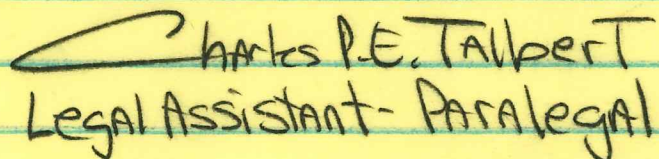 Charles P.E. Talbert
Legal Assistant - Paralegal